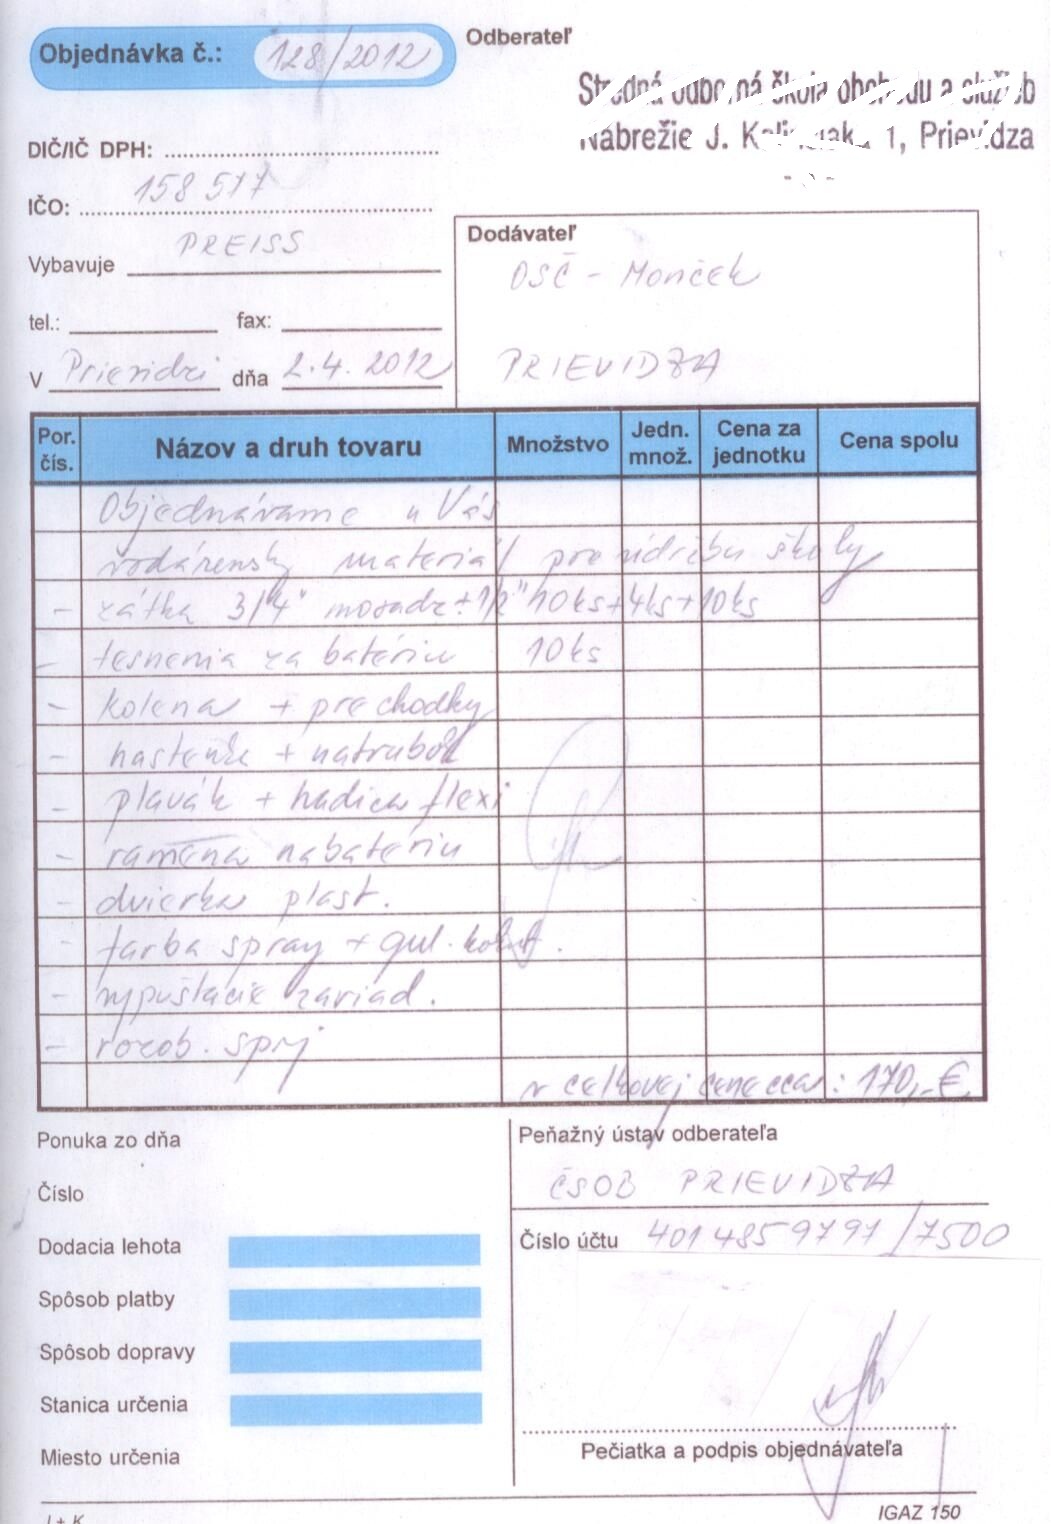 Objednávka č.: 128/2012
Odberateľ
Stredná odborná škola obchodu a služieb
Nábrežie J. Kalinčiaka 1, Prievidza
DIČ/IČ DPH:
IČO: 158 517
Vybavuje PREISS
tel.: fax:
V Prievidzi dňa 2.4.2012
Dodávateľ
OSČ - Monček
PRIEVIDZA
Por. čís. Názov a druh tovaru Množstvo Jedn. množ. Cena za jednotku Cena spolu
Objednávame u Vás
vodárenský materiál pre údržbu školy
- zátka 3/4" mosadz + 1/2" 10ks+4ks+10ks
- tesnenia za batériu 10ks
- kolena + prechodky
- + natrubok
- plavák + hadica flexi
- ramena na batériu
- dvierka plast.
- farba spray + gul. kohut.
- vypúšťacie zariad.
- rozob.
v celkovej cene cca: 170,-€
Ponuka zo dňa
Číslo
Dodacia lehota
Spôsob platby
Spôsob dopravy
Stanica určenia
Miesto určenia
Peňažný ústav odberateľa
ČSOB PRIEVIDZA
Číslo účtu 4014859797/7500
Pečiatka a podpis objednávateľa
J + K
IGAZ 150